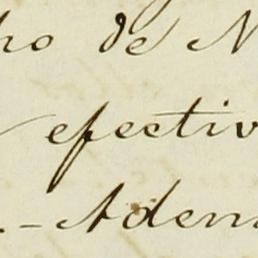 ho de N
efectiv
- Adem